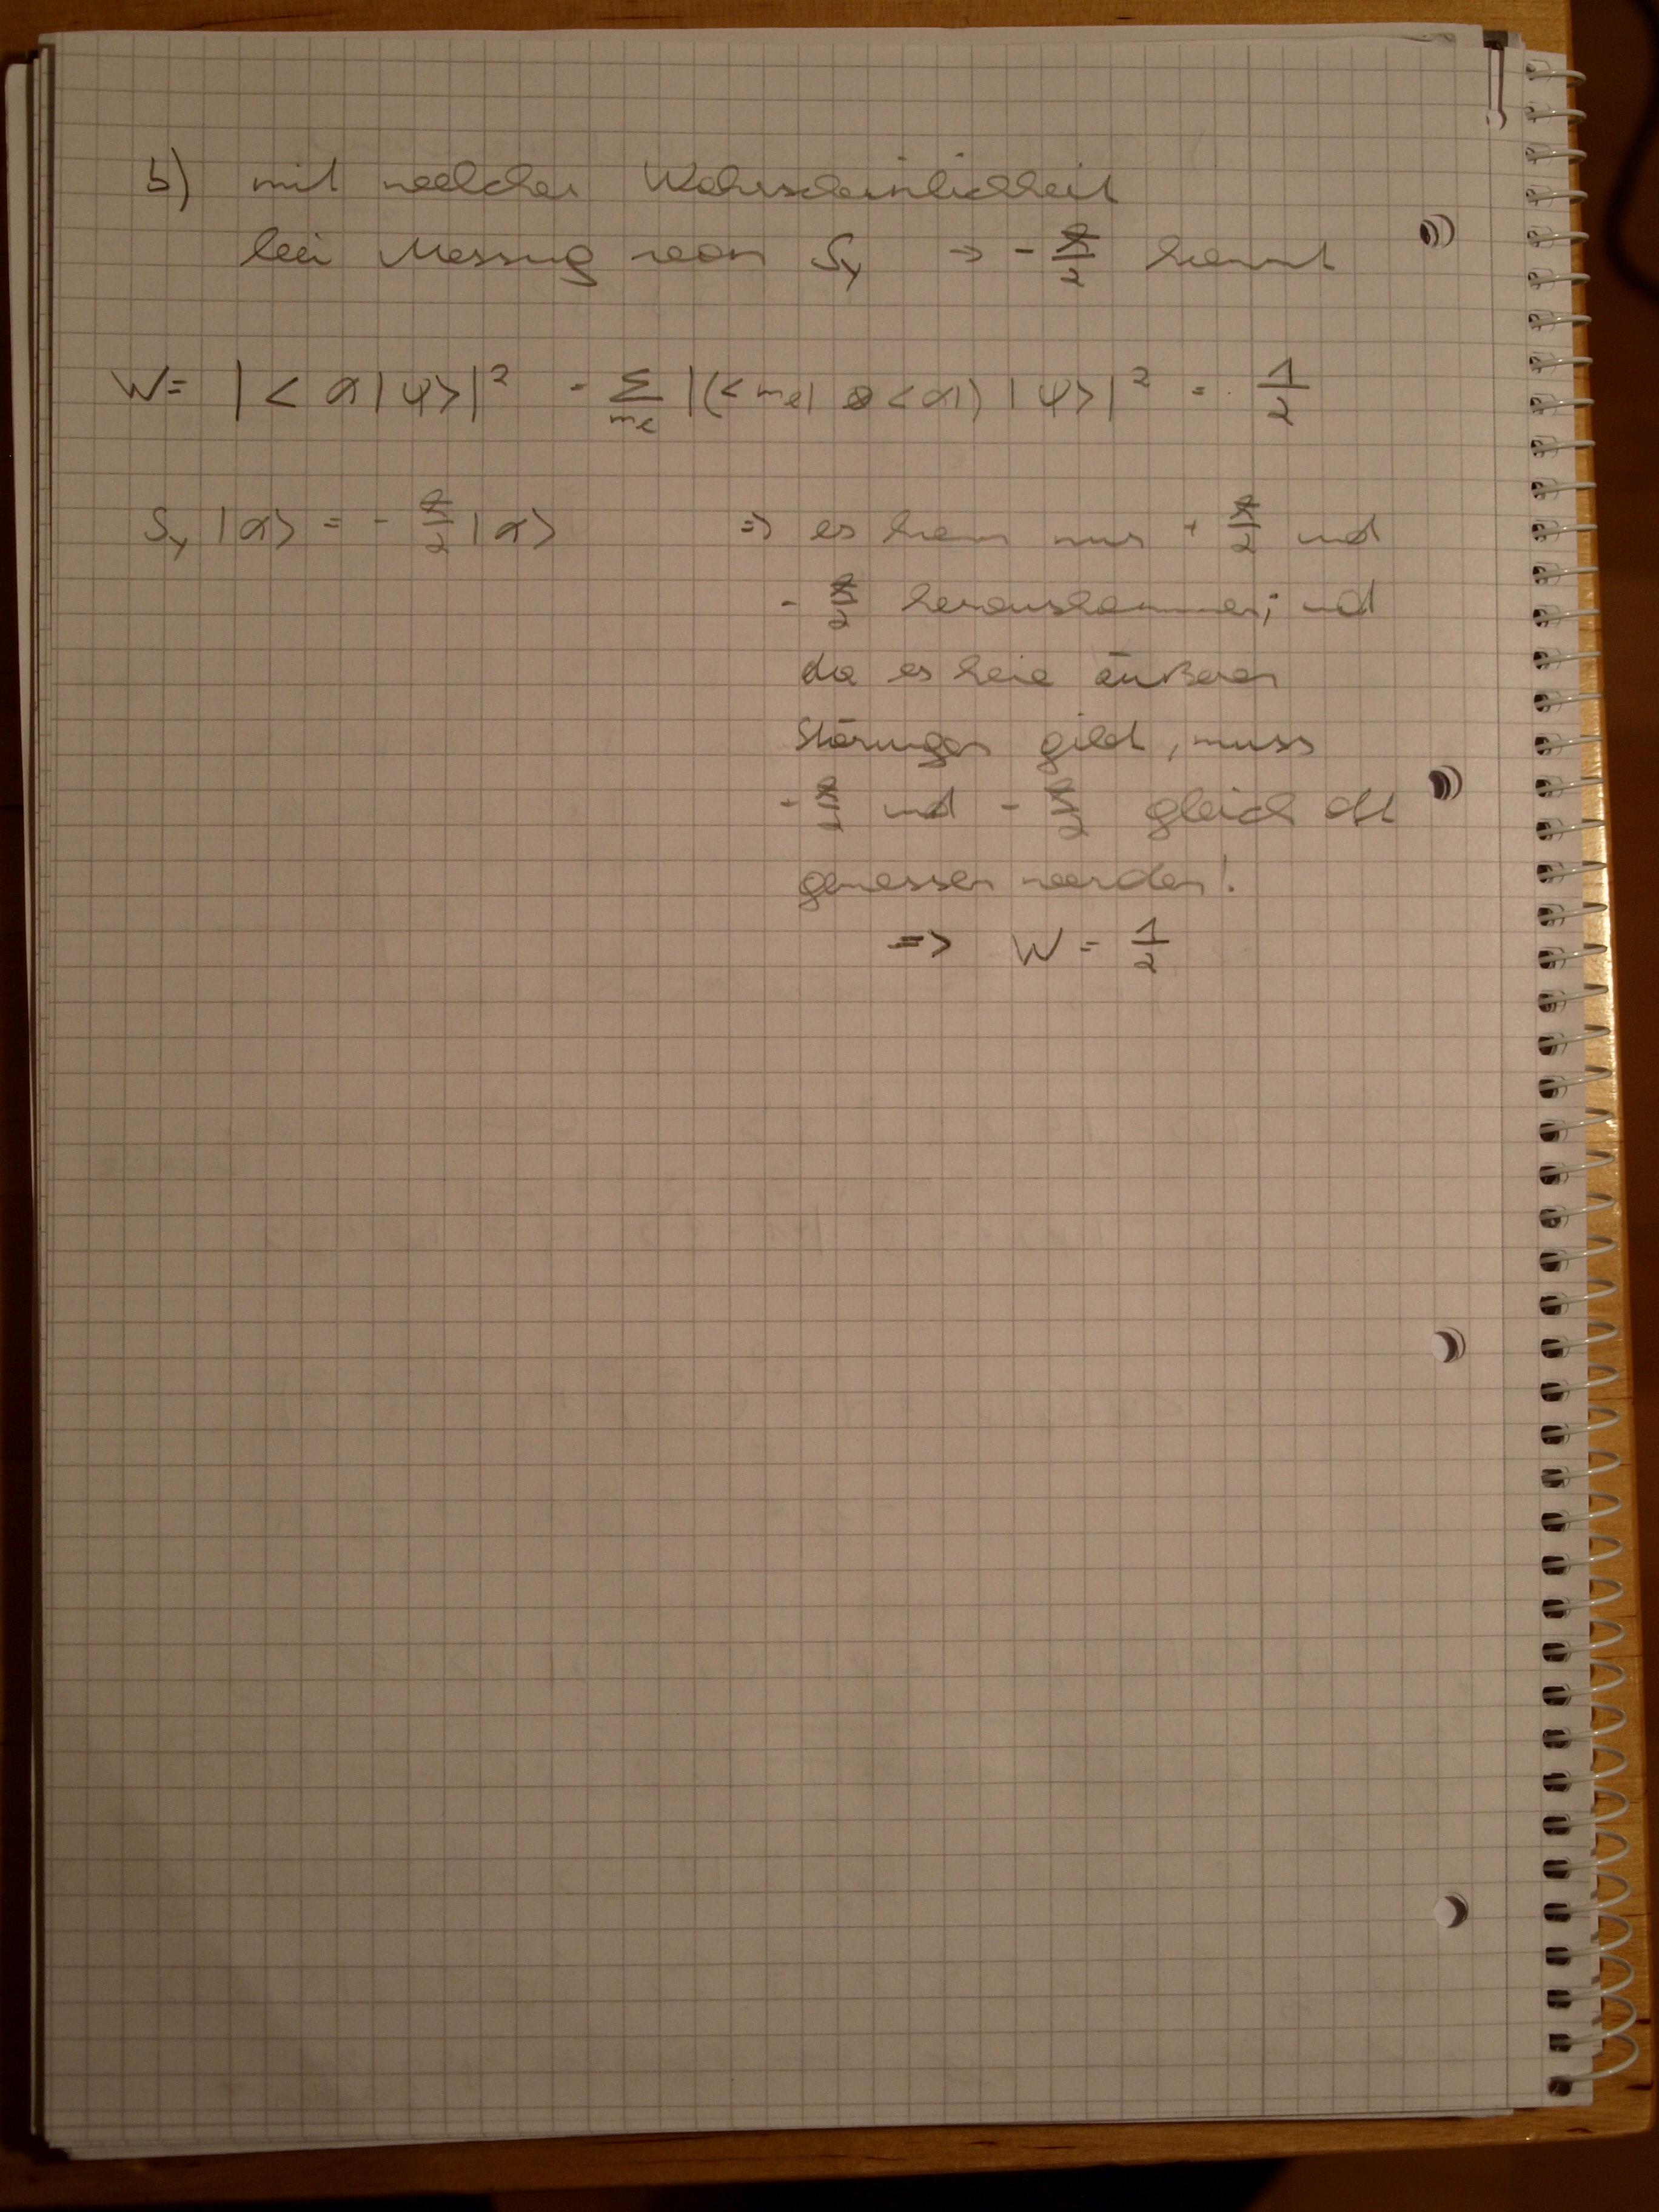 b) mit welcher Wahrscheinlichkeit
bei Messung von Sy → - ħ/2 kommt
W = |<α|ψ>|² = Σ_me |(<me| ⊗ <α|) |ψ>|² = 1/2
Sy |α> = - ħ/2 |α> ⇒ es kann nur + ħ/2 und
- ħ/2 herauskommen; und
da es keine äußeren
Störungen gibt, muss
- ħ/2 und - ħ/2 gleich oft
gemessen werden!
=> W = 1/2